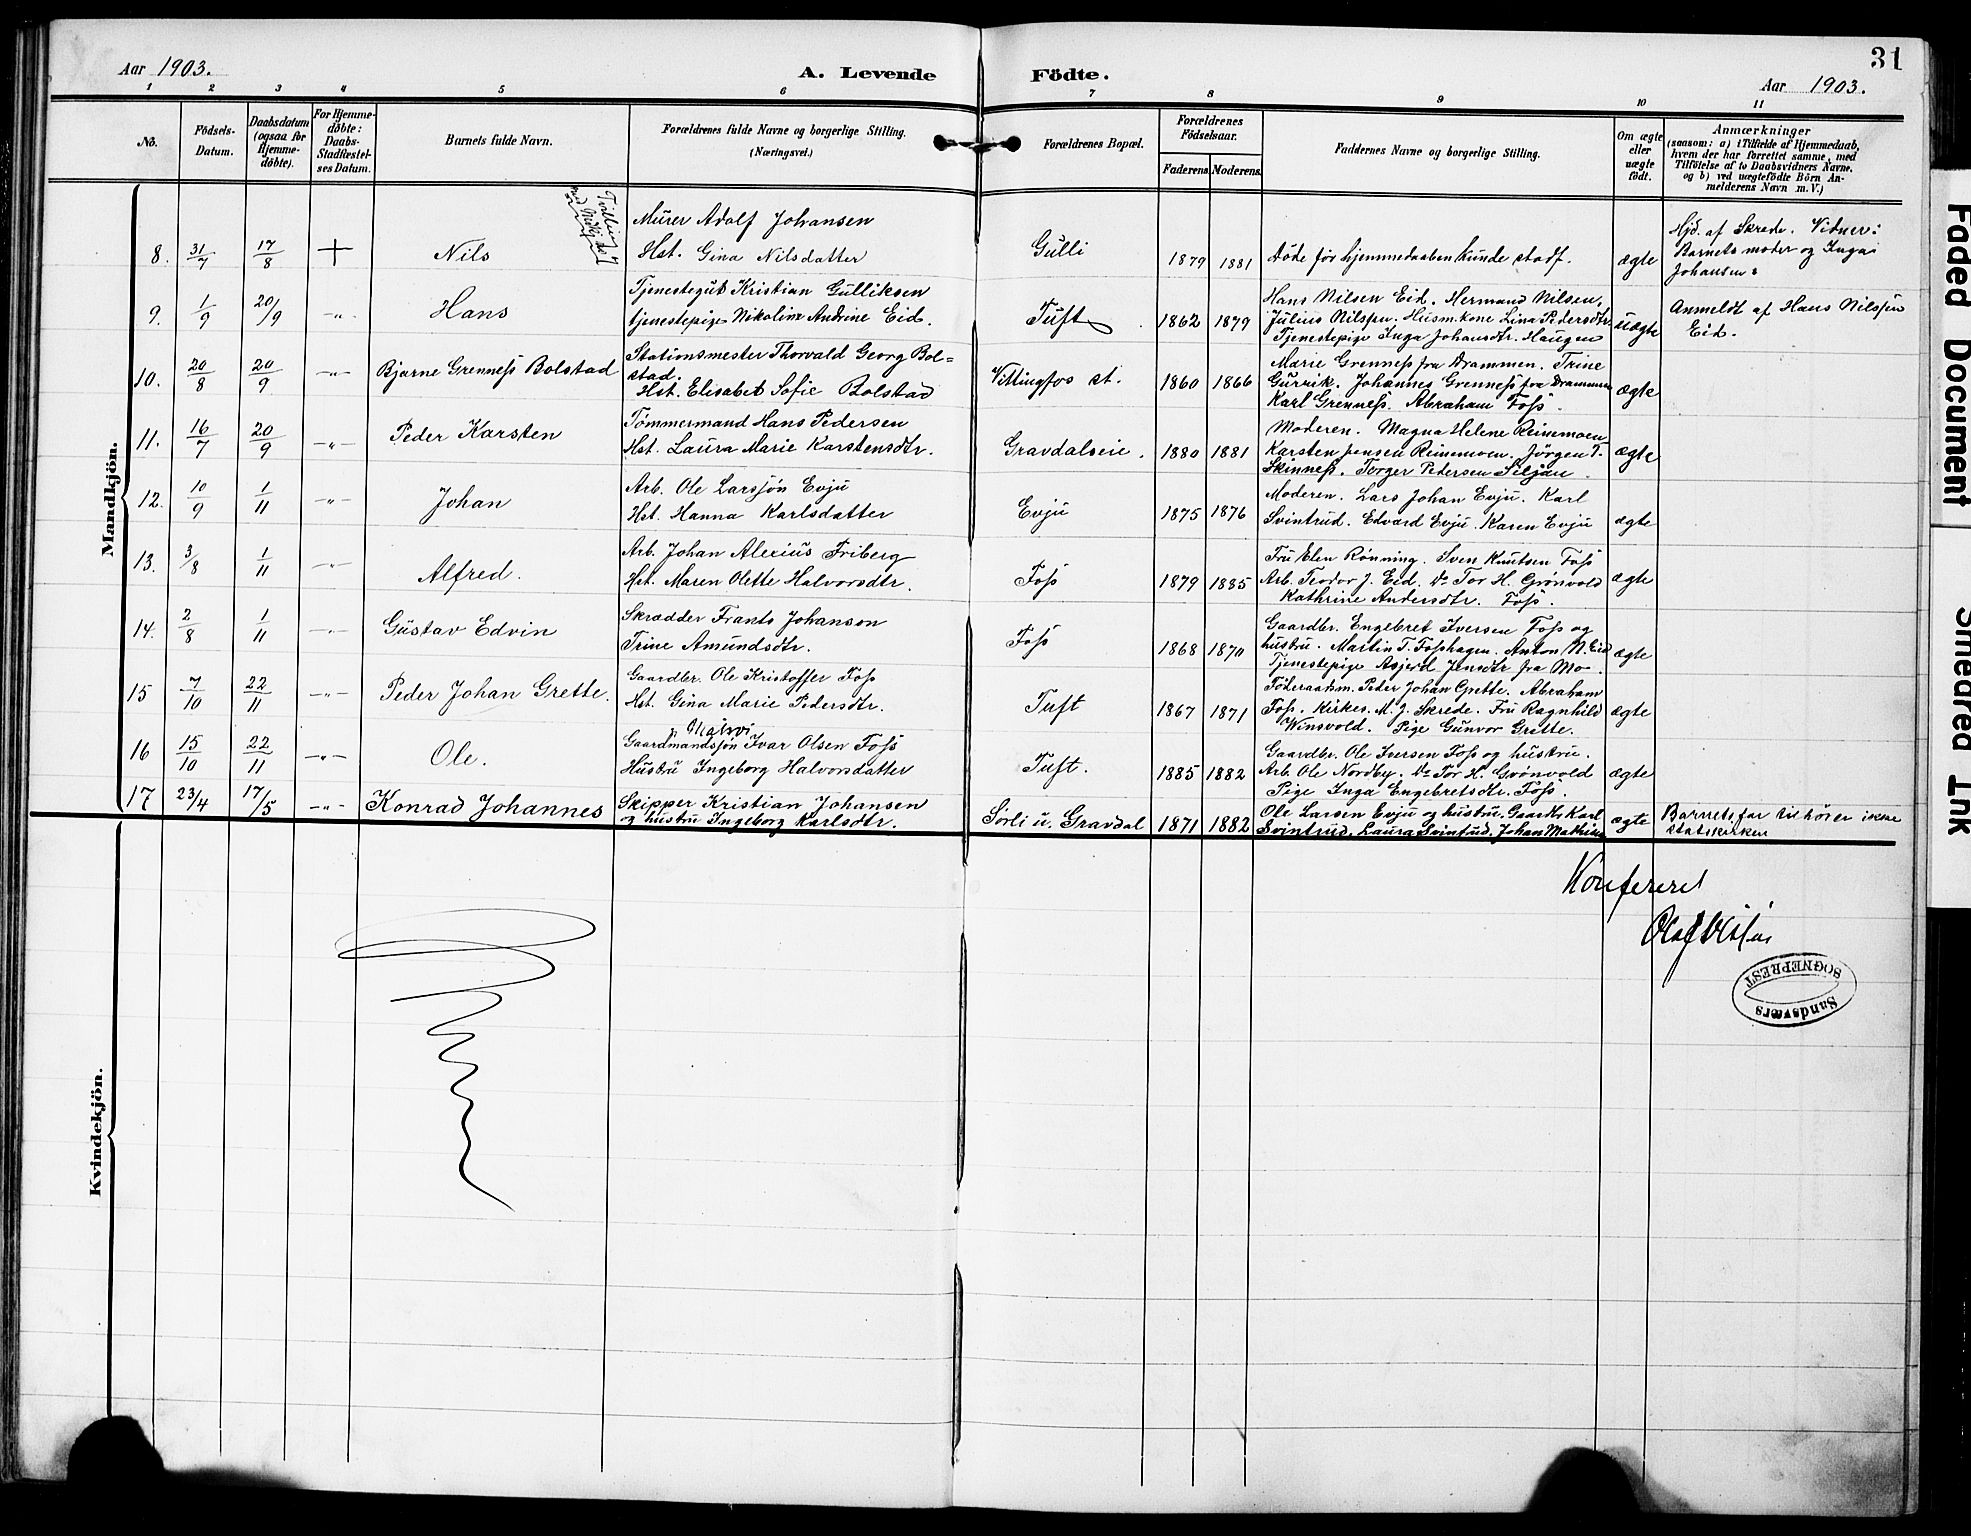 31
Aar 1903.
A. Levende Födte.
Aar 1903.
1 2 3 4 5 6 7 8 9 10 11
No.
Födsels-Datum.
Daabsdatum (ogsaa for Hjemme-döbte).
For Hjemme-döbte: Daabs-Stadfæstel-ses Datum.
Barnets fulde Navn.
Forældrenes fulde Navne og borgerlige Stilling.
(Næringsvei.)
Forældrenes Bopæl.
Forældrenes Födselsaar.
Faderens. Moderens.
Faddernes Navne og borgerlige Stilling.
Om ægte eller uægte födt.
Anmærkninger
(saasom: a) i Tilfælde af Hjemmedaab,
hvem der har forrettet samme, med
Tilföielse af to Daabsvidners Navne,
og b) ved uægtefödte Börn An-
melderens Navn m. V.)
Mandkjön.
8. 31/7 17/8 + Nils
Tvilling
Murer Adolf Johansen
Hst. Gina Nilsdatter
Gulli 1879 1881
Døde før hjemmedaaben kunde stadf.
ægte
Hjd. af Skrede. Vidner:
Barnets moder og Inga
Johansen
9. 1/9 20/9 -"- Hans
Tjenestegut Kristian Gulliksen
tjenestepige Nikoline Andrine Eid.
Tuft 1862 1879
Hans Nilsen Eid. Hermand Nilsen,
Julius Nilssen. Husm.kone Lina Pedersdtr
Tjenestepige Inga Johansdtr. Haugen
uægte
Anmeldt af Hans Nilssen
Eid.
10. 20/8 20/9 -"- Bjarne Grenness Bolstad
Stationsmester Thorvald Georg Bol=
stad.
Hst. Elisabet Sofie Bolstad
Vittingfos st. 1860 1866
Marie Grenness fra Drammen. Trine
Gurrik. Johannes Grenness fra Drammen
Karl Grenness. Abraham Foss.
ægte
11. 16/7 20/9 -"- Peder Karsten
Tömmermand Hans Pedersen
Hst. Laura Marie Karstensdtr.
Gravdalseie. 1880 1881
Moderen. Magna Helene Reinemoen
Karsten Jensen Reinemoen. Jørgen P.
Skinness. Torger Pedersen Siljan.
ægte
12. 10/9 1/11 -"- Johan
Arb. Ole Larssøn Evju
Hst. Hanna Karlsdatter
Evju 1875 1876
Moderen. Lars Johan Evju. Karl
Svintrud. Edvard Evju. Karen Evju
ægte
13. 3/8 1/11 -"- Alfred.
Arb. Johan Alexius Friberg
Hst. Maren Olette Halvorsdtr.
Foss 1879 1885
Fru Elen Rønning. Sven Knutsen Foss
Arb. Teodor J. Eid. do Tor H. Grønvold
Kathrine Andersdtr. Foss.
ægte
14. 2/8 1/11 -"- Gustav Edvin
Skrædder Frants Johanson
Trine Amundsdtr.
Foss 1868 1870
Gaardbr. Engebret Iversen Foss og
hustru. Martin T. Fosshagen. Anton N. Eid
Tjenestepige Asjerd Jensdtr fra Mo
ægte
15 7/10 22/11 -"- Peder Johan Grette.
Gaardbr. Ole Kristoffer Foss
Hst. Gina Marie Pedersdtr.
Tuft 1867 1871
Föderaadsm. Peder Johan Grette. Abraham
Foss. Kirkes. M. J. Skrede. Fru Ragnhild
Winsvold. Pige Gunvor Grette.
ægte
16 15/10 22/11 -"- Ole.
Gaardmandssøn Ivar Olsen Foss
Hustru Ingeborg Halvorsdatter
Tuft. 1885 1882
Gaardbr. Ole Iversen Foss og hustru.
Arb. Ole Nordby. do Tor H. Grønvold
Pige Inga Engebretsdtr. Foss.
ægte
17 23/4 17/5 -"- Konrad Johannes
Skipper Kristian Johansen
og hustru Ingeborg Karlsdtr.
Sørli u. Gravdal 1871 1882
Ole Larsen Evju og hustru. Gaardbr Karl
Svintrud. Laura Svintrud. Johan Mathisen
ægte
Barnets far tilhører ikke
statskirken
Konfereret
SOGNEPREST
Sandsværs
Kvindekjön.
Faded Document
Smedred Ink